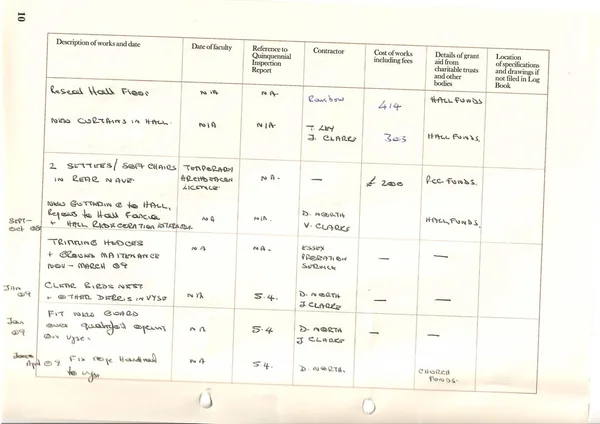 10
Description of works and date
Date of faculty
Reference to
Quinquennial
Inspection
Report
Contractor
Cost of works
including fees
Details of grant
aid from
charitable trusts
and other
bodies
Location
of specifications
and drawings if
not filed in Log
Book
Reseal Hall Floor
N/A
NA.
Rainbow
414
HALL FUNDS
NEW CURTAINS IN HALL.
N/A
N/A
J. CLARKE
303
HALL FUNDS.
2 SETTEES/ SOFT CHAIRS
IN REAR NAVE.
TEMPORARY
ARCHDEACON
LICENCE
NA.
—
£ 200
PCC FUNDS.
SEPT-
OCT 08
NEW GUTTERING to HALL,
Repairs to Hall Fascia
+ HALL REDECORATION
NA
N/A.
D. NORTH
V. CLARKE
HALL FUNDS.
TRIMMING HEDGES
+ GROUND MAITENANCE
NOV - MARCH 09
NA
NA.
ESSEX
PROBATION
SERVICE
—
—
JAN
09
CLEAR BIRDS NEST
+ OTHER DEBRIS IN VYSE
N/A
5.4.
D. NORTH
J CLARKE
—
—
Jan
09
FIT NEW BOARD
over opening
Vyse.
NA
5.4
D. NORTH
J CLARKE
—
—
Apr 09
Fix rope Handrail
to Vyse
NA
5.4.
D. NORTH.
CHURCH
FUNDS.